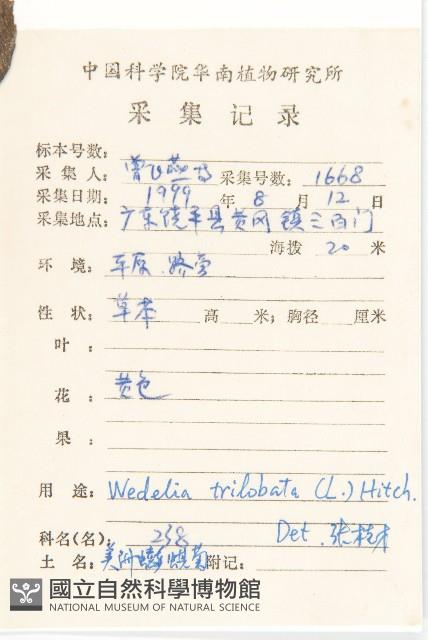 中国科学院华南植物研究所
采集记录
标本号数：
采集人：曾飞燕等 采集号数：1668
采集日期：1999年8月12日
采集地点：广东饶平县黄冈镇三百门
海拨 20 米
环境：草原.路旁
性状：草本 高 米；胸径 厘米
叶：
花：黄色
果：
用途：Wedelia trilobata (L.) Hitch.
科名(名)：238 Det.张桂才
土名：美洲蟛蜞菊 附记：
國立自然科學博物館
NATIONAL MUSEUM OF NATURAL SCIENCE